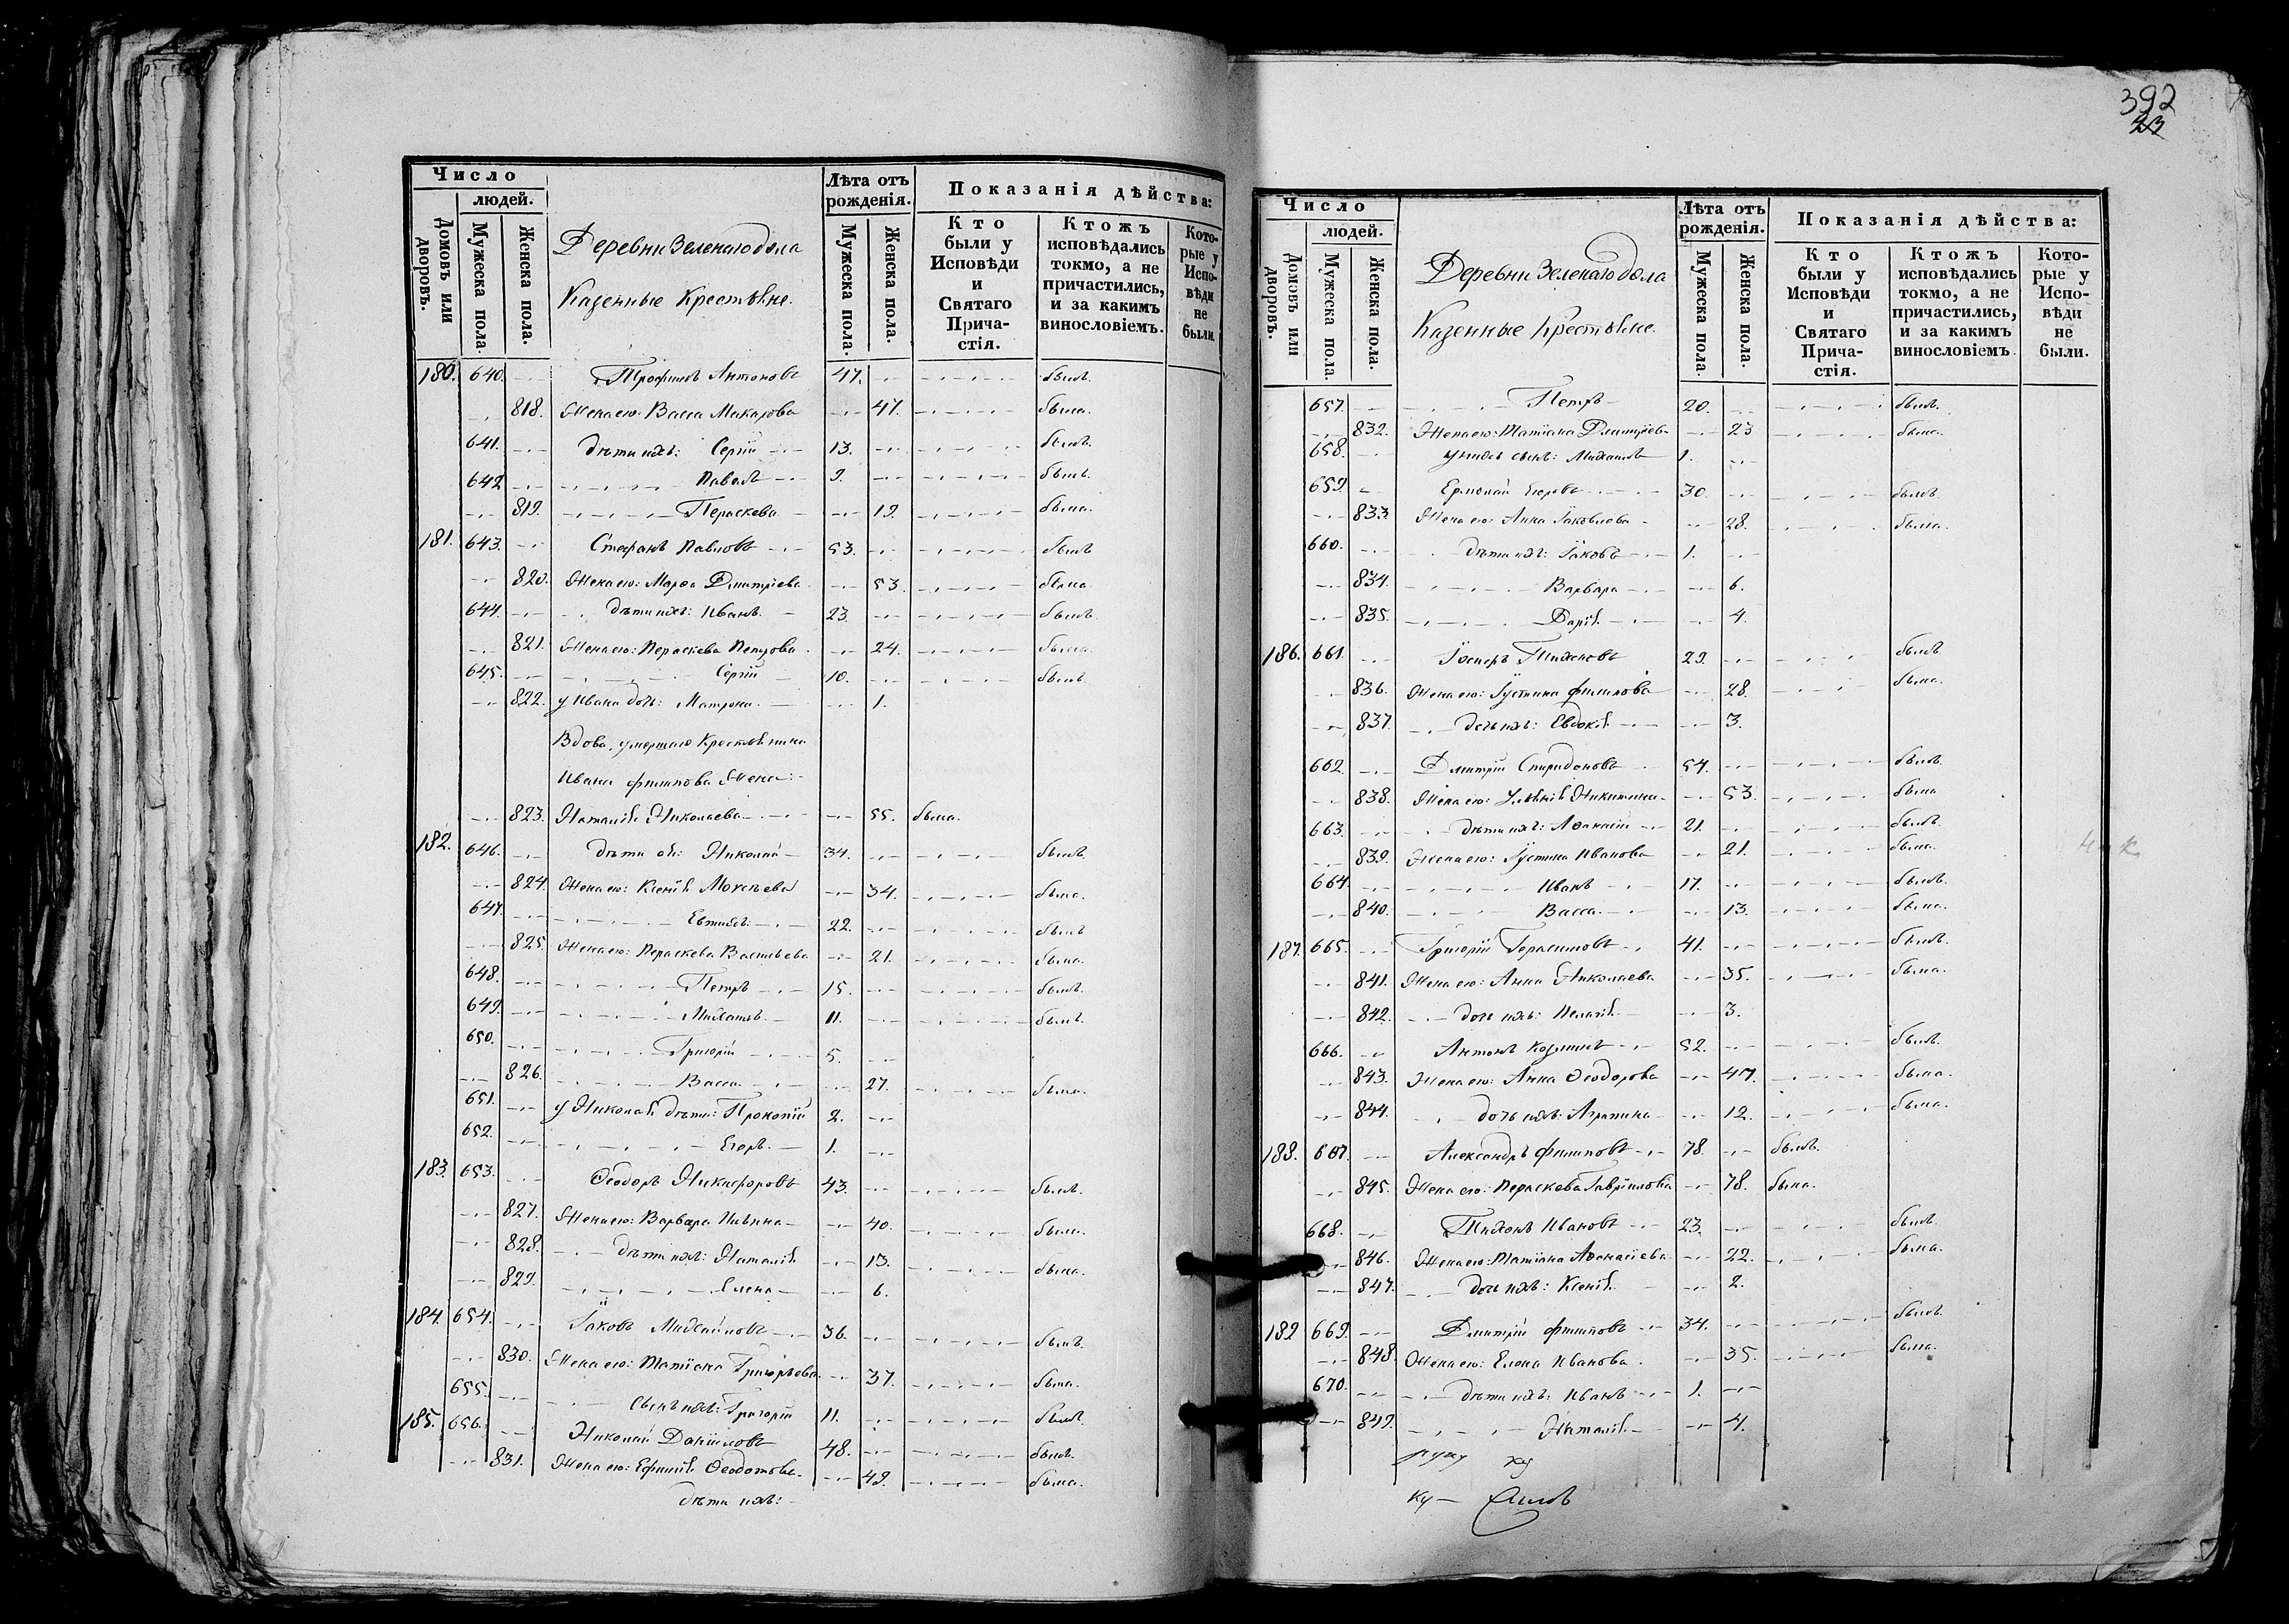 392
23
Число
людей.
Домовъ или дворовъ.
Мужеска пола.
Женска пола.
Деревни Зеленаго дола
Казенные Крестьяне.
Лѣта отъ рожденія.
Мужеска пола.
Женска пола.
Показанія дѣйства:
Кто были у Исповѣди и Святаго Причастія.
Ктожъ исповѣдались токмо, а не причастились, и за какимъ винословіемъ.
Которые у Исповѣди не были.
180. 640. Трофимъ Антоновъ 47. былъ.
818. Жена его: Васса Макарова 47. была.
641. дѣти ихъ: Сергій 13. былъ.
642 Павелъ 9. былъ.
819. Параскева 19. была.
181. 643. Стефанъ Павловъ 53. былъ
820. Жена его: Марѳа Дмитріева 53. была
644. дѣти ихъ: Иванъ 23. былъ.
821. Жена его: Параскева Петрова 24. была
645. Сергій 10. былъ
822. у Ивана дочь: Матрона 1.
Вдова, умершаго Крестьянина
Ивана Филипова Жена:
823. Наталія Николаева 55. была.
182. 646. дѣти ея: Николай 34. былъ.
824. Жена его: Ксенія Моисѣева 34. была.
647. Евтихій 22. былъ
825. Жена его: Параскева Васильева 21. была.
648. Петръ 15. былъ.
649. Михаилъ 11. былъ.
650. Григорій 5.
826. Васса 27. была.
651. у Николая дѣти: Прокопій 2.
652. Егоръ 1.
183. 653. Ѳеодоръ Никифоровъ 43. былъ.
827. Жена его: Варвара Ильина 40. была.
828. дѣти ихъ: Наталія 13. была.
829. Елена 6.
184. 654. Іаковъ Михайловъ 36. былъ.
830. Жена его: Татіана Григорьева 37. была.
655. сынъ ихъ: Григорій 11. былъ.
185. 656. Николай Даніиловъ 48. былъ.
831. Жена его: Ефимія Ѳеодотова 49. была.
дѣти ихъ:
Число
людей.
Домовъ или дворовъ.
Мужеска пола.
Женска пола.
Деревни Зеленаго дола
Казенные Крестьяне.
Лѣта отъ рожденія.
Мужеска пола.
Женска пола.
Показанія дѣйства:
Кто были у Исповѣди и Святаго Причастія.
Ктожъ исповѣдались токмо, а не причастились, и за какимъ винословіемъ.
Которые у Исповѣди не были.
657. Петръ 20. былъ.
832. Жена его: Татіана Дмитріева 23 была.
658. у нихъ сынъ: Михаилъ 1.
659. Ермолай Егоровъ 30. былъ.
833. Жена его: Анна Іаковлева 28. была.
660. дѣти ихъ: Іаковъ 1.
834. Варвара 6.
835. Дарія 4.
186. 661. Тихоновъ 29. былъ
836. Жена его: Іустина Филипова 28. была.
837. дочь ихъ: Евдокія 3.
662. Дмитрій Спиридоновъ 54. былъ.
838. Жена его: Уліанія Никитина 53. была
663. дѣти ихъ: Аѳанасій 21. былъ.
839. Жена его: Іустина Иванова 21. была.
664. Иванъ 17. былъ.
840. Васса 13. была.
187. 665. Григорій Герасимовъ 41. былъ.
841. Жена его: Анна Николаева 35. была.
842. дочь ихъ: Пелагія 3.
666. Антонъ Козминъ 52. былъ.
843. Жена его: Анна Ѳеодорова 47. была.
844. дочь ихъ: Агрипина 12. была.
188. 667. Александръ Филиповъ 78. былъ.
845. Жена его: Параскева Гавріилова 78. была.
668. Тихонъ Ивановъ 23. былъ.
846. Жена его: Татіана Аѳанасіева 22. была.
847. дочь ихъ: Ксенія 2.
189 669. Дмитрій Филиповъ 34. былъ.
848. Жена его: Елена Иванова 35. была.
670. дѣти ихъ: Иванъ 1.
849. Наталія 4.